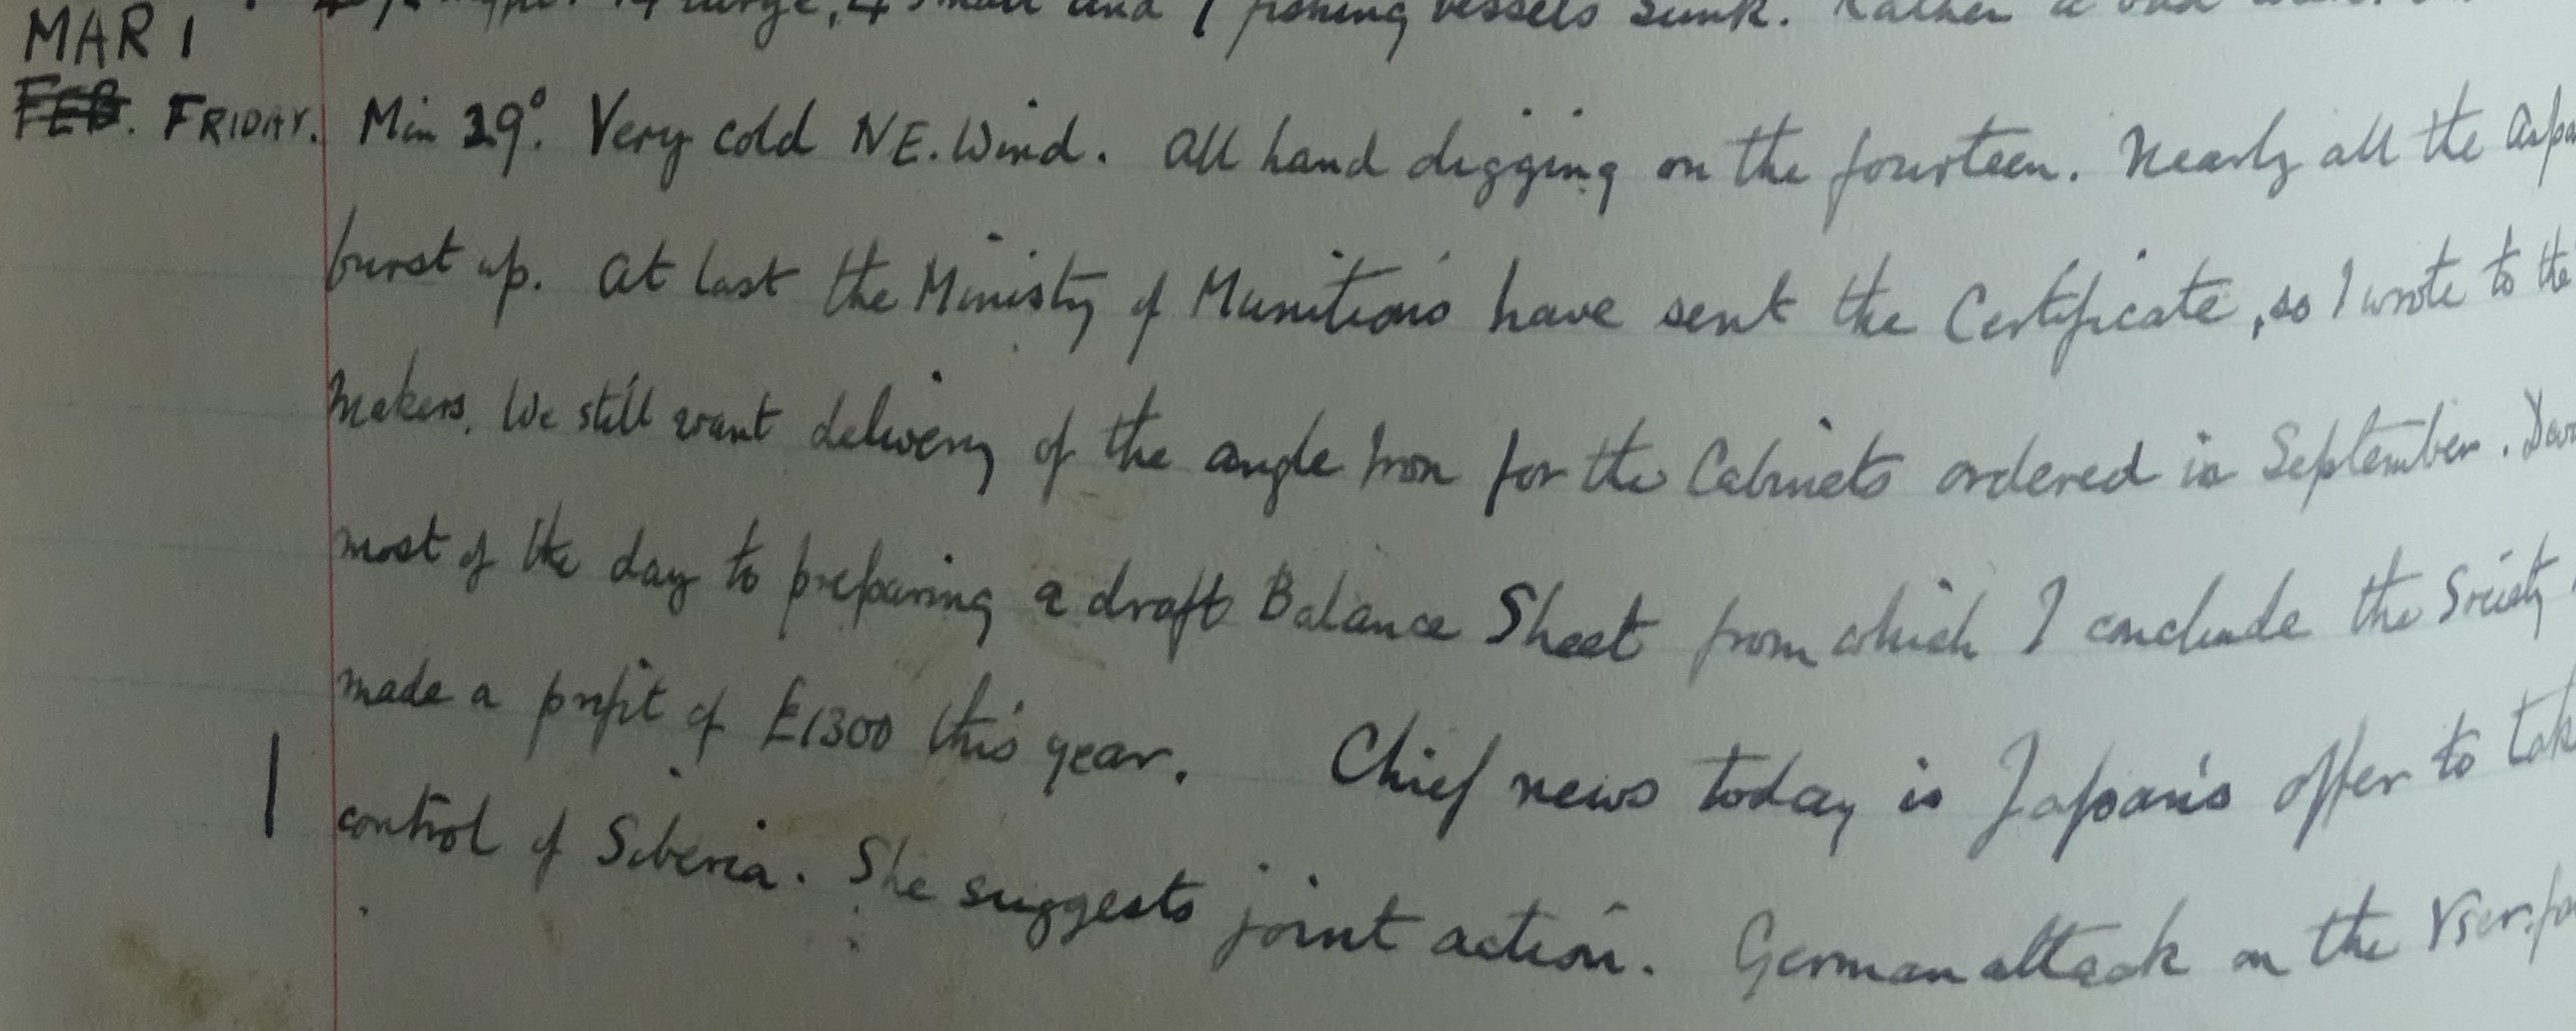 large, 4 small and 1 fishing vessels sunk. Rather a bad
MAR 1
FEB. FRIDAY. Min 29°. Very cold NE. Wind. All hand digging on the fourteen. Nearly all the
burst up. At last the Ministry of Munitions have sent the Certificate, so I wrote to the
makers. We still want delivery of the angle Iron for the Cabinets ordered in September.
most of the day to preparing a draft Balance Sheet from which I conclude the Society
made a profit of £1300 this year. Chief news today is Japan's offer to
control of Siberia. She suggests joint action. German attack on the Yser.